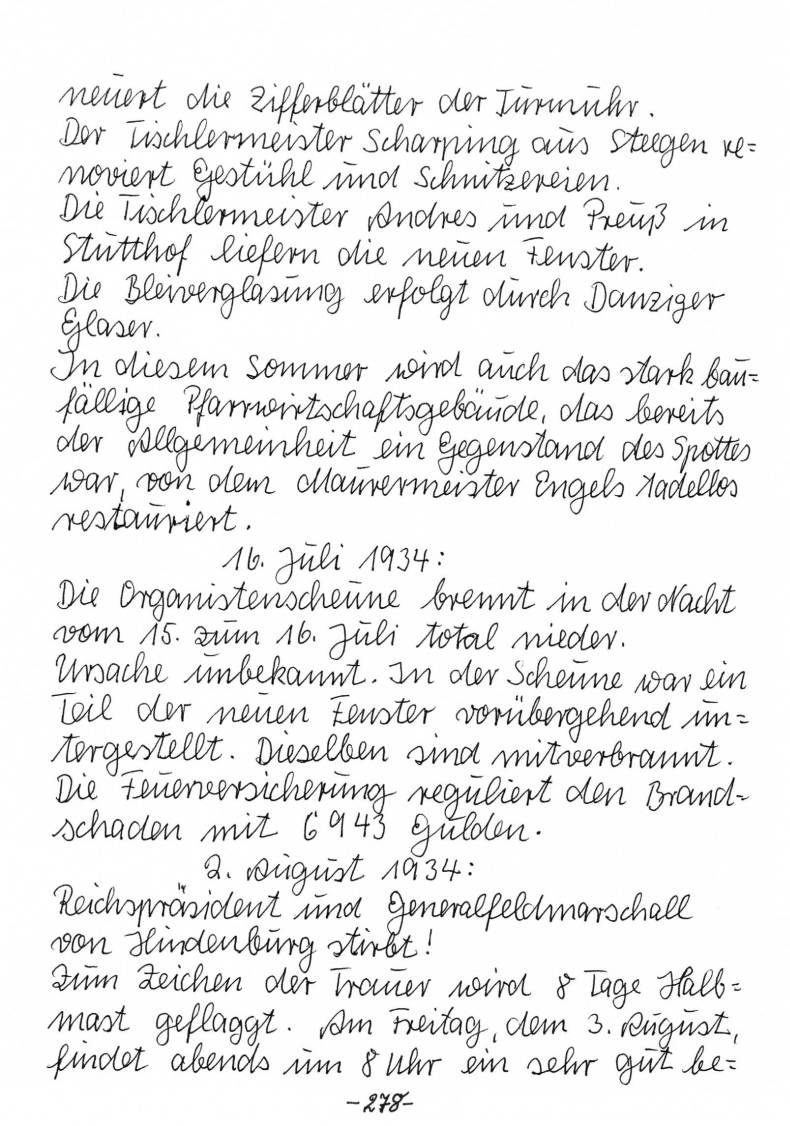 neuert die Zifferblätter der Turmuhr.
Der Tischlermeister Scharping aus Steegen re=
noviert Gestühl und Schnitzereien.
Die Tischlermeister Andres und Preuß in
Stutthof liefern die neuen Fenster.
Die Bleiverglasung erfolgt durch Danziger
Glaser.
In diesem Sommer wird auch das stark bau=
fällige Pfarrwirtschaftsgebäude, das bereits
der Allgemeinheit ein Gegenstand des Spottes
war, von dem Maurermeister Engels tadellos
restauriert.
16. Juli 1934:
Die Organistenscheune brennt in der Nacht
vom 15. zum 16. Juli total nieder.
Ursache unbekannt. In der Scheune war ein
Teil der neuen Fenster vorübergehend un=
tergestellt. Dieselben sind mitverbrannt.
Die Feuerversicherung reguliert den Brand=
schaden mit 6943 Gulden.
2. August 1934:
Reichspräsident und Generalfeldmarschall
von Hindenburg stirbt!
Zum Zeichen der Trauer wird 8 Tage Halb=
mast geflaggt. Am Freitag, dem 3. August,
findet abends um 8 Uhr ein sehr gut be=
-278-